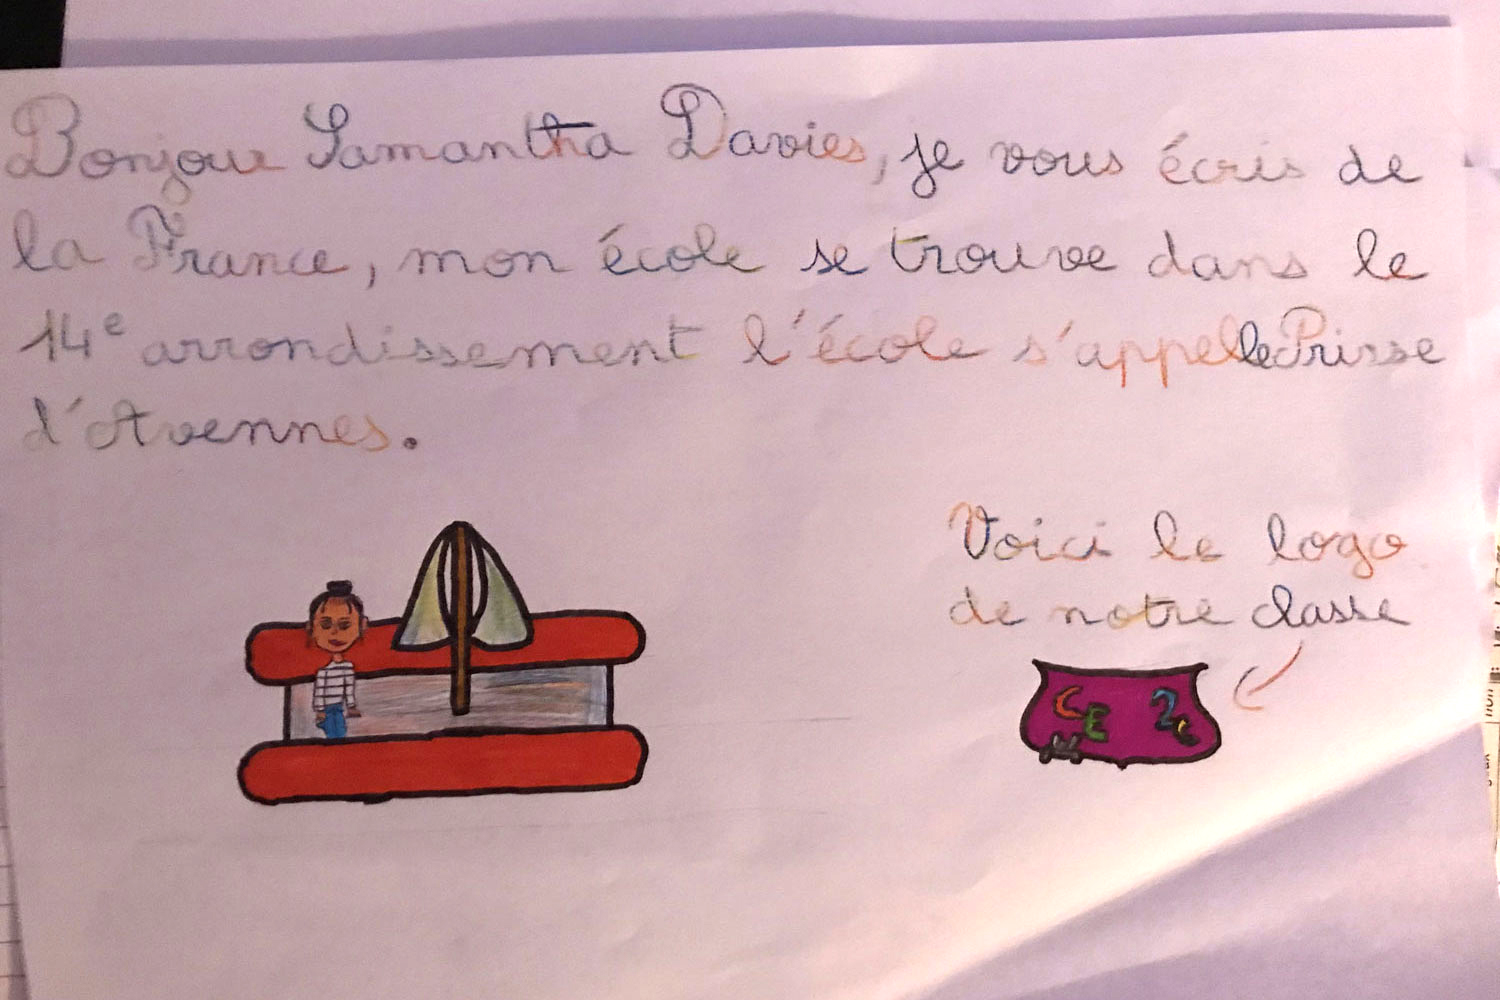 Bonjour Samantha Davies, je vous écris de
la France, mon école se trouve dans le
14e arrondissement l'école s'appelle Prisse
d'Avennes.
Voici le logo
de notre classe
CE 2e